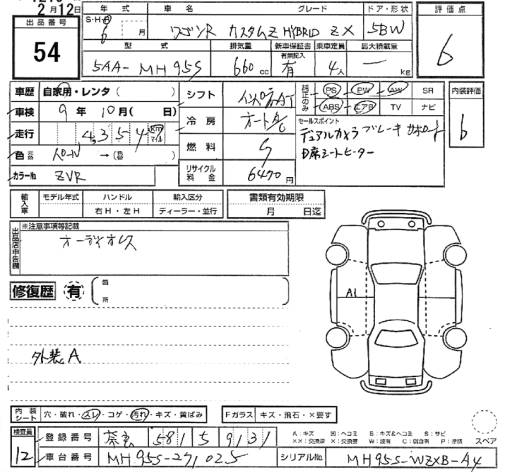 2月12日
出品番号
54
年式 車名 グレード ドア・形状
S・H・R 6 月 ワゴンR カスタムZ HYBRID ZX 5BW
型式 排気量 新車保証書 乗車定員 最大積載量
有無記入
5AA-MH95S 660cc 有 4人 — kg
評価点
6
車歴 自家用・レンタ( )
シフト インパネAT
純正のみ PS PW AW SR
ABS エアB TV ナビ
内装評価
b
車検 9年10月( 日)
冷房 オートA/C
セールスポイント
デュアルカメラブレーキサポート
D席シートヒーター
走行 4354
燃料 G
色 パール →( )
カラーNo ZVR
リサイクル料金 6470円
輸入車 モデル年式 ハンドル 輸入区分
年 右H・左H ディーラー・並行
書類有効期限
月 日迄
出品店申告欄
※注意事項等記載
オーディオレス
修復歴 有 箇所
A1
外装A
内装シート 穴・破れ・スレ・コゲ・汚れ・キズ・黄ばみ
Fガラス キズ・飛石・×要す
A:キズ U:ヘコミ B:キズ&ヘコミ S:サビ
XX:交換済 X:交換要 W:波有 C:腐食有 P:塗要
スペア
検査員 12
登録番号 奈良 581 す 9131
車台番号 MH95S-271025
シリアルNo. MH95S-WZXB-A4